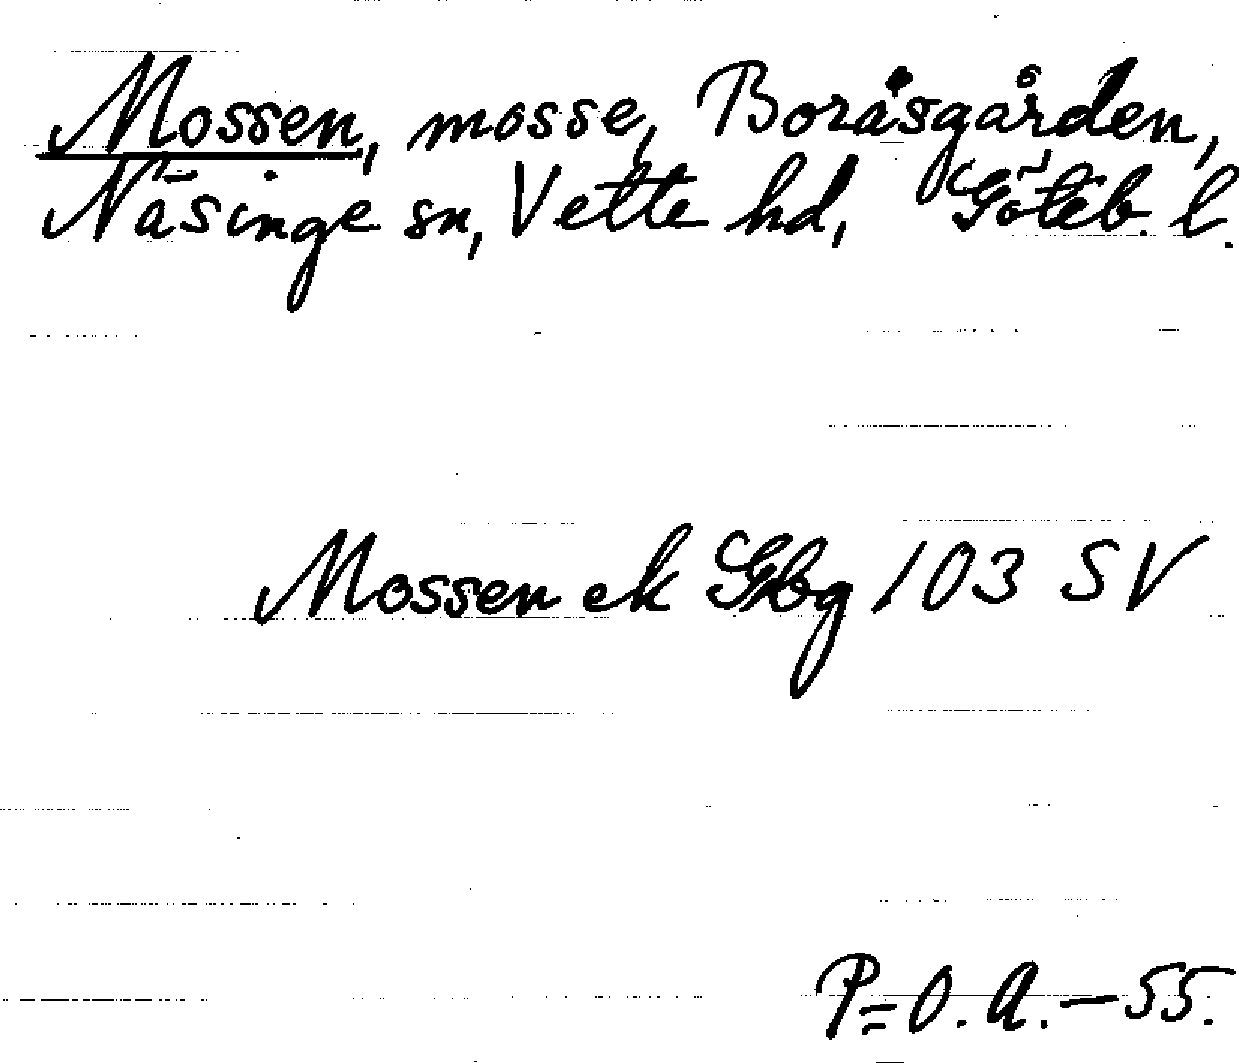 Mossen, mosse, Boråsgården,
Näsinge sn, Vette hd, Göteb. l.
Mossen ek Gbg 103 SV
P=O. A. – 55.